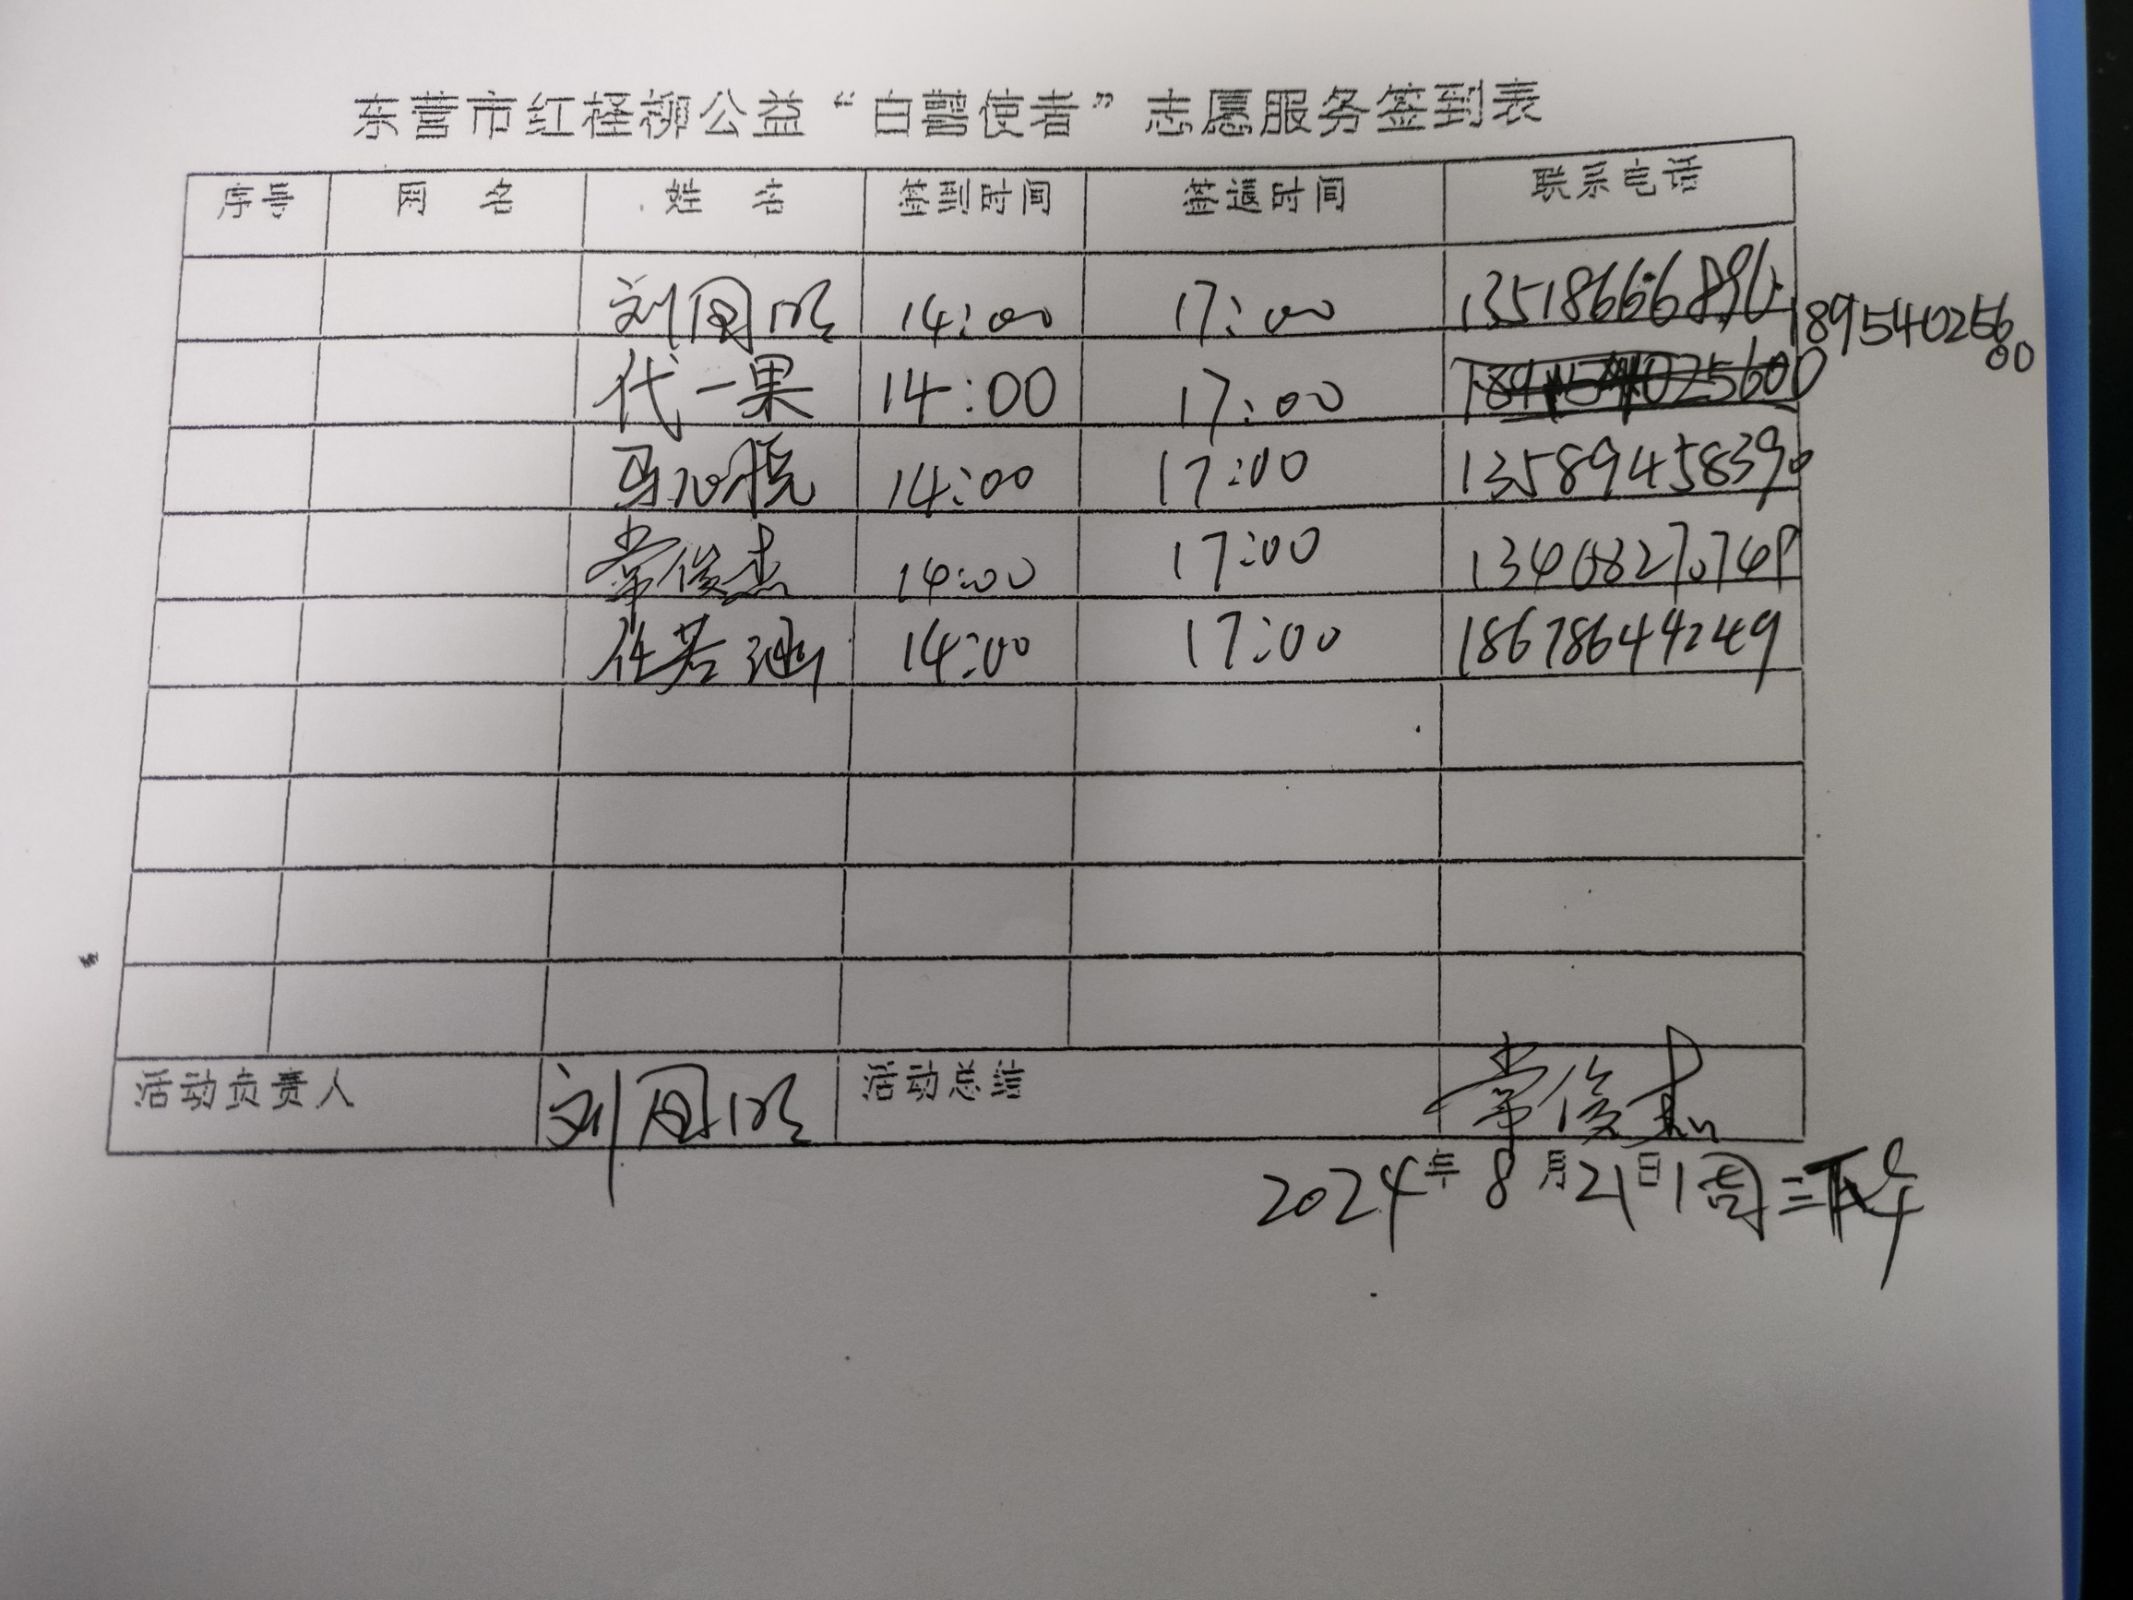 东营市红柽柳公益“白鹭使者”志愿服务签到表
序号 网 名 姓 名 签到时间 签退时间 联系电话
刘国明 14:00 17:00
代一果 14:00 17:00 18954025600
14:00 17:00 13589458390
常俊杰 14:00 17:00
任若涵 14:00 17:00 18678644249
活动负责人 刘国明 活动总结 常俊杰
2024年8月21日周三下午